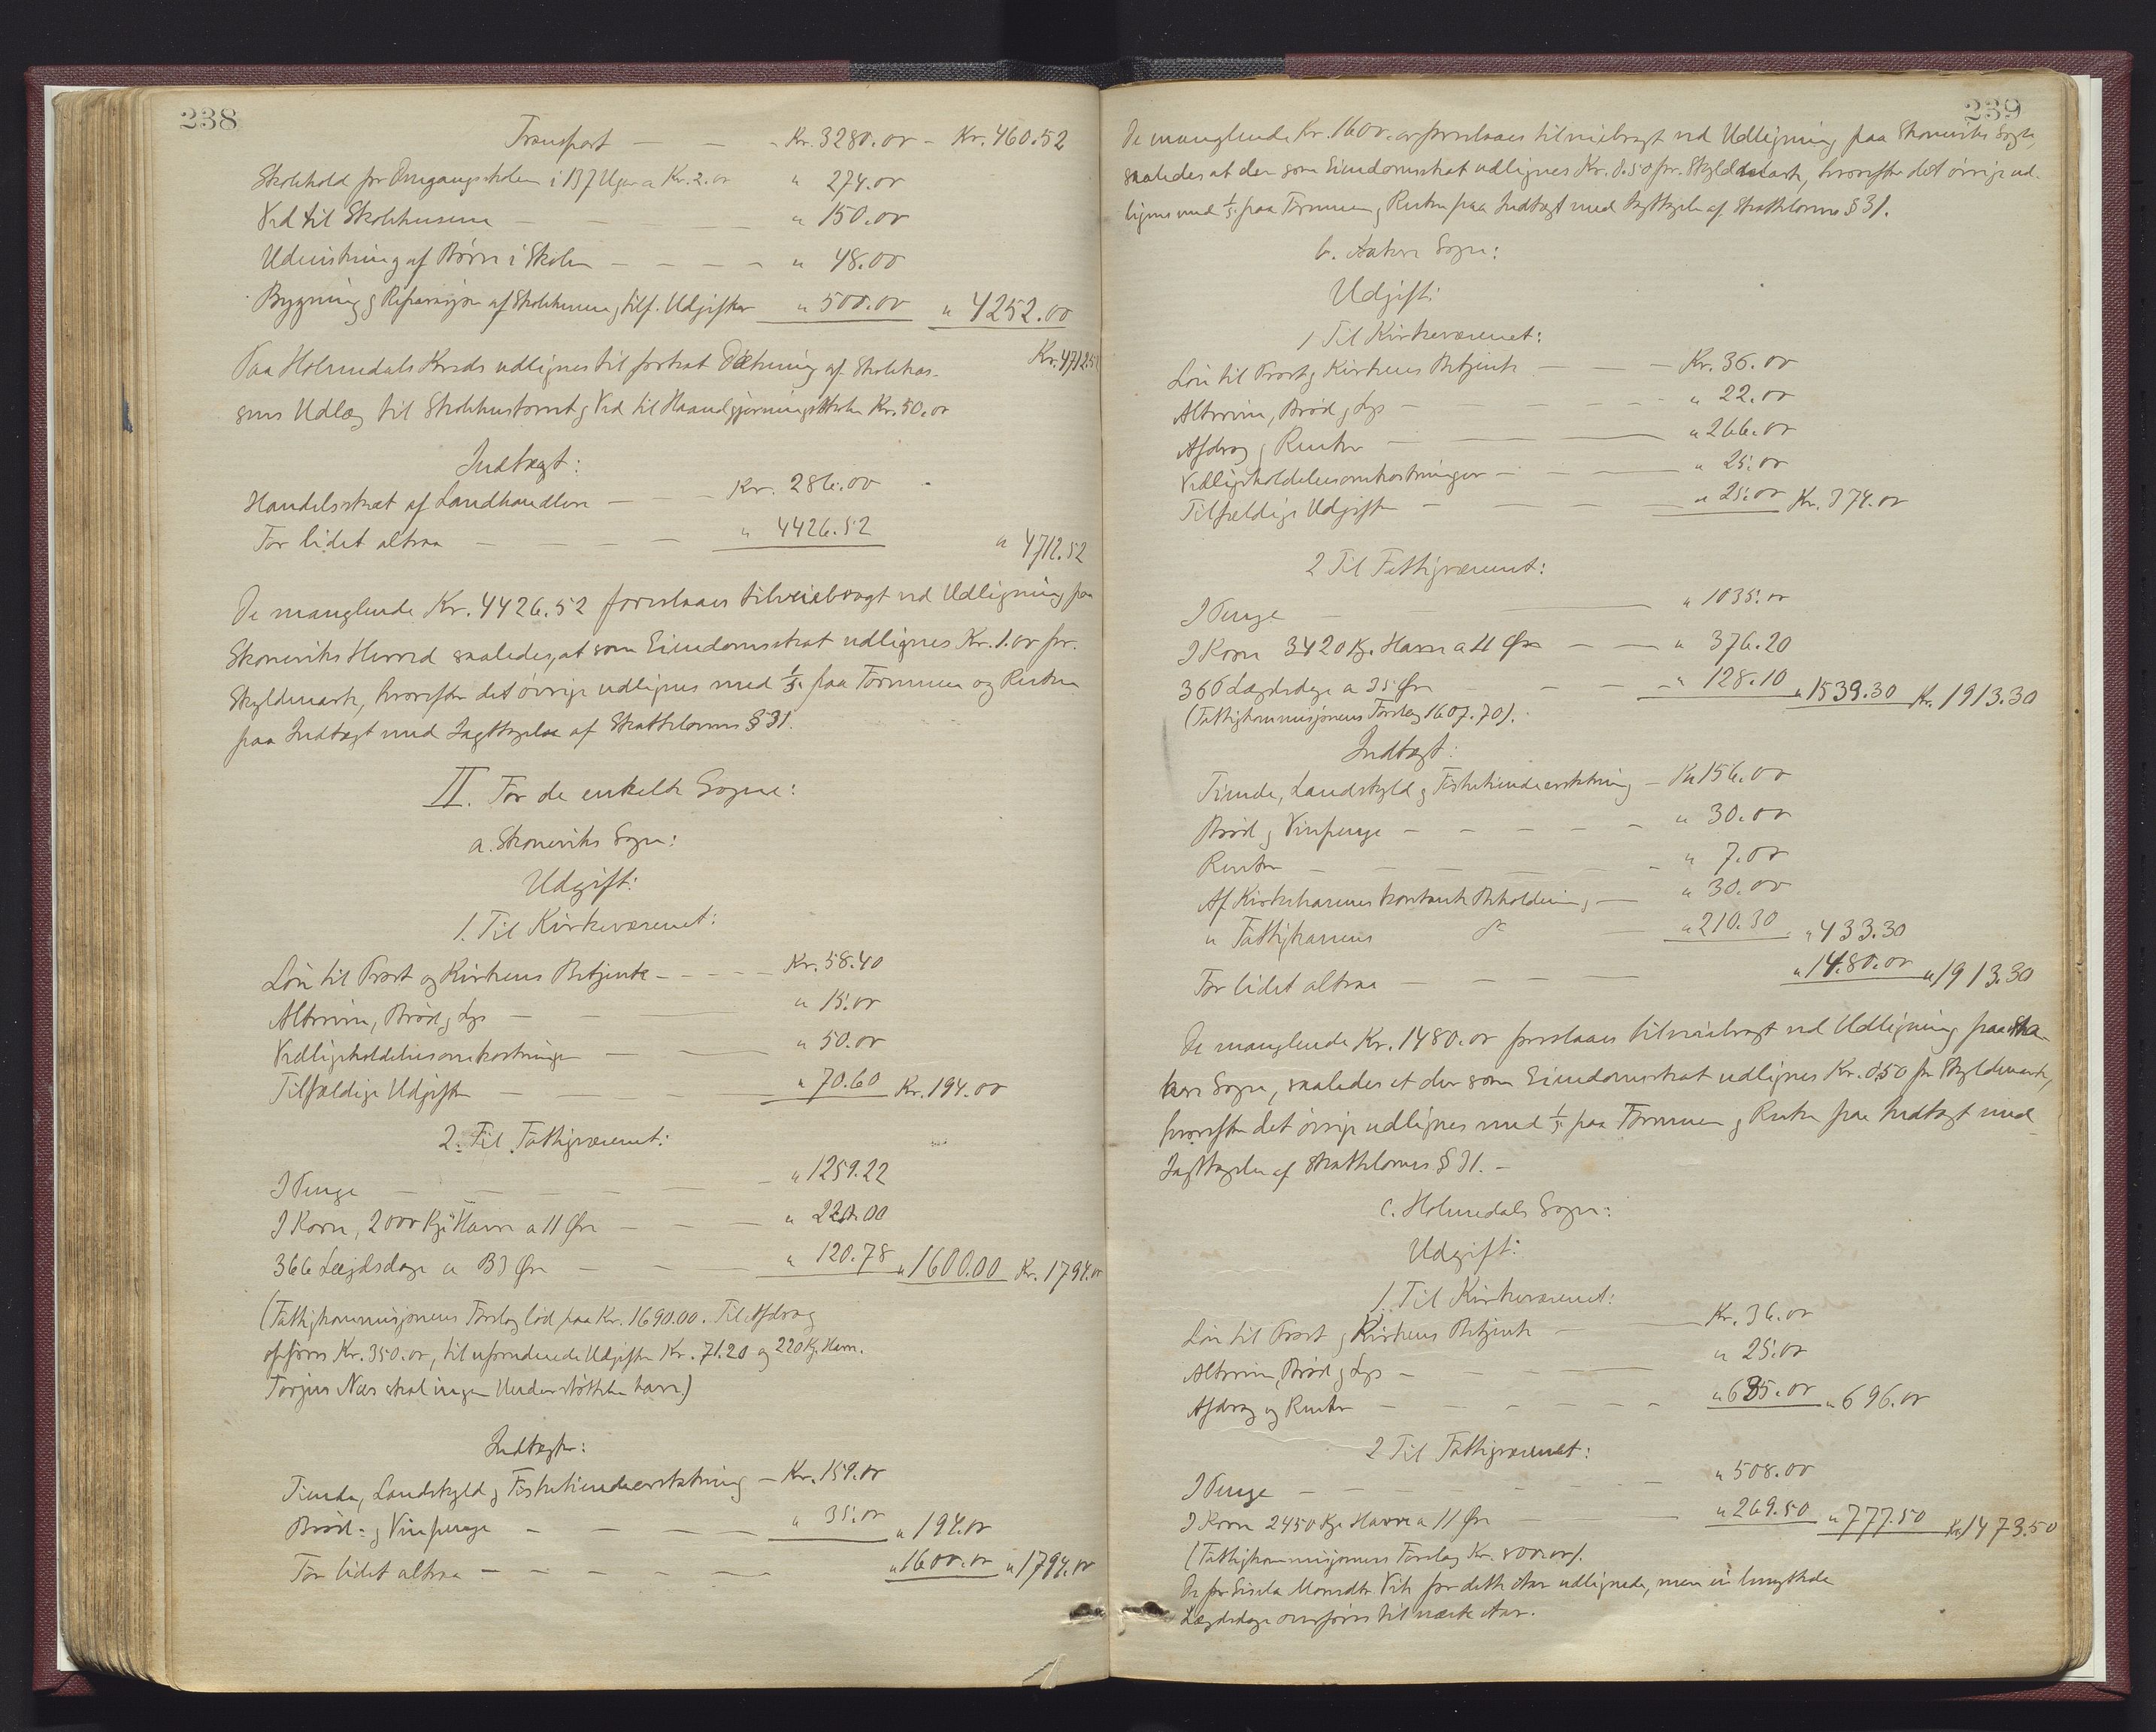 238
Transport — — - Kr. 3280.00 - Kr. 460.52
Skolehold for Omgangsskolen i 137 Uger a Kr. 2.00 " 274.00
Ved til Skolehusene — — — " 150.00
Udvisning af Børn i Skolen — — — — " 48.00
Bygning og Reparasjon af Skolehusene, tilf. Udgifter " 500.00 " 4252.00
Kr. 4712.52
Paa Holmedals Kreds udlignes til fortsat Dækning af Skolekas-
sens Udlæg til Skolehustomt og Ved til Haandgjerningsskolen Kr. 50.00
Indtægt:
Handelsskat af Landhandlere — — Kr. 286.00
For lidet altsaa — — — — " 4426.52 " 4712.52
De manglende Kr. 4426.52 foreslaaes tilveiebragt ved Udligning paa
Skoneviks Herred saaledes, at som Eiendomsskat udlignes Kr. 1.00 pr.
Skyldmark, hvorefter det øvrige udlignes med 1/5 paa Formuen og Resten
paa Indtægt med Iagttagelse af Skattelovens § 31.
II. For de enkelte Sogne:
a. Skoneviks Sogn:
Udgift:
1. Til Kirkevæsenet:
Løn til Prost og Kirkens Betjente - - - - Kr. 58.40
Altervin, Brød og Lys — — — " 15.00
Vedligeholdelsesomkostninger — — " 50.00
Tilfældige Udgifter — — — " 70.60 Kr. 194.00
2. Til Fattigvæsenet:
I Penge — — — — — " 1259.22
I Korn, 2000 Kg. Havre a 11 Øre — — — " 220.00
366 Lægdsdage a 33 Øre — — — " 120.78 " 1600.00 Kr. 1794.00
(Fattigkommisjonens Forslag lød paa Kr. 1690.00. Til Afdrag
opføres Kr. 350.00, til uforudseede Udgifter Kr. 71.20 og 220 Kg. Havre.
Torjus Næs skal ingen Understøttelse have.)
Indtægter:
Tiende, Landskyld og Fisketiendeerstatning — Kr. 159.00
Brød- og Vinpenge — — — — " 35.00 " 194.00
For lidet altsaa — — — — — " 1600.00 " 1794.00
239
De manglende Kr. 1600.00 foreslaaes tilveiebragt ved Udligning paa Skoneviks Sogn,
saaledes at der som Eiendomsskat udlignes Kr. 0.50 pr. Skyldmark, hvorefter det øvrige ud-
lignes med 1/5 paa Formuen og Resten paa Indtægt med Iagttagelse af Skattelovens § 31.
b. Aakere Sogn:
Udgift:
1 Til Kirkevæsenet:
Løn til Prost og Kirkens Betjente — — — Kr. 36.00
Altervin, Brød og Lys — — — — " 22.00
Afdrag og Renter — — — " 266.00
Vedligeholdelsesomkostninger — — — " 25.00
Tilfældige Udgifter — — — — " 25.00 Kr. 374.00
2 Til Fattigvæsenet:
I Penge — — " 1035.00
I Korn 3420 Kg. Havre a 11 Øre — — " 376.20
366 Lægdsdage a 35 Øre — — — " 128.10 " 1539.30 Kr. 1913.30
(Fattigkommisjonens Forslag 1607.70).
Indtægt:
Tiende, Landskyld og Fisketiendeerstatning — Kr 156.00
Brød og Vinpenge — — — — — " 30.00
Renter — — — — — " 7.00
Af Kirkekassens kontante Beholdning — " 30.00
" Fattigkassens do — " 210.30 " 433.30
For lidet altsaa — — — — " 1480.00 " 1913.30
De manglende Kr. 1480.00 foreslaaes tilveiebragt ved Udligning paa Aa-
kere Sogn, saaledes at der som Eiendomsskat udlignes Kr. 0.50 pr Skyldmark,
hvorefter det øvrige udlignes med 1/5 paa Formuen og Resten paa Indtægt med
Iagttagelse af Skattelovens § 31. -
c. Holmedals Sogn:
Udgift:
1. Til Kirkevæsenet:
Løn til Prost og Kirkens Betjente — — Kr. 36.00
Altervin, Brød og Lys — — — — " 25.00
Afdrag og Renter — — — — — " 635.00 " 696.00
2 Til Fattigvæsenet:
I Penge — — — — — — " 508.00
I Korn 2450 Kg. Havre a 11 Øre — — — " 269.50 " 777.50 Kr 1473.50
(Fattigkommisjonens Forslag Kr. 800.00).
De for Sisela Monsdtr. Vik for dette Aar udlignede, men ei benyttede
Lægdsdage overføres til næste Aar.